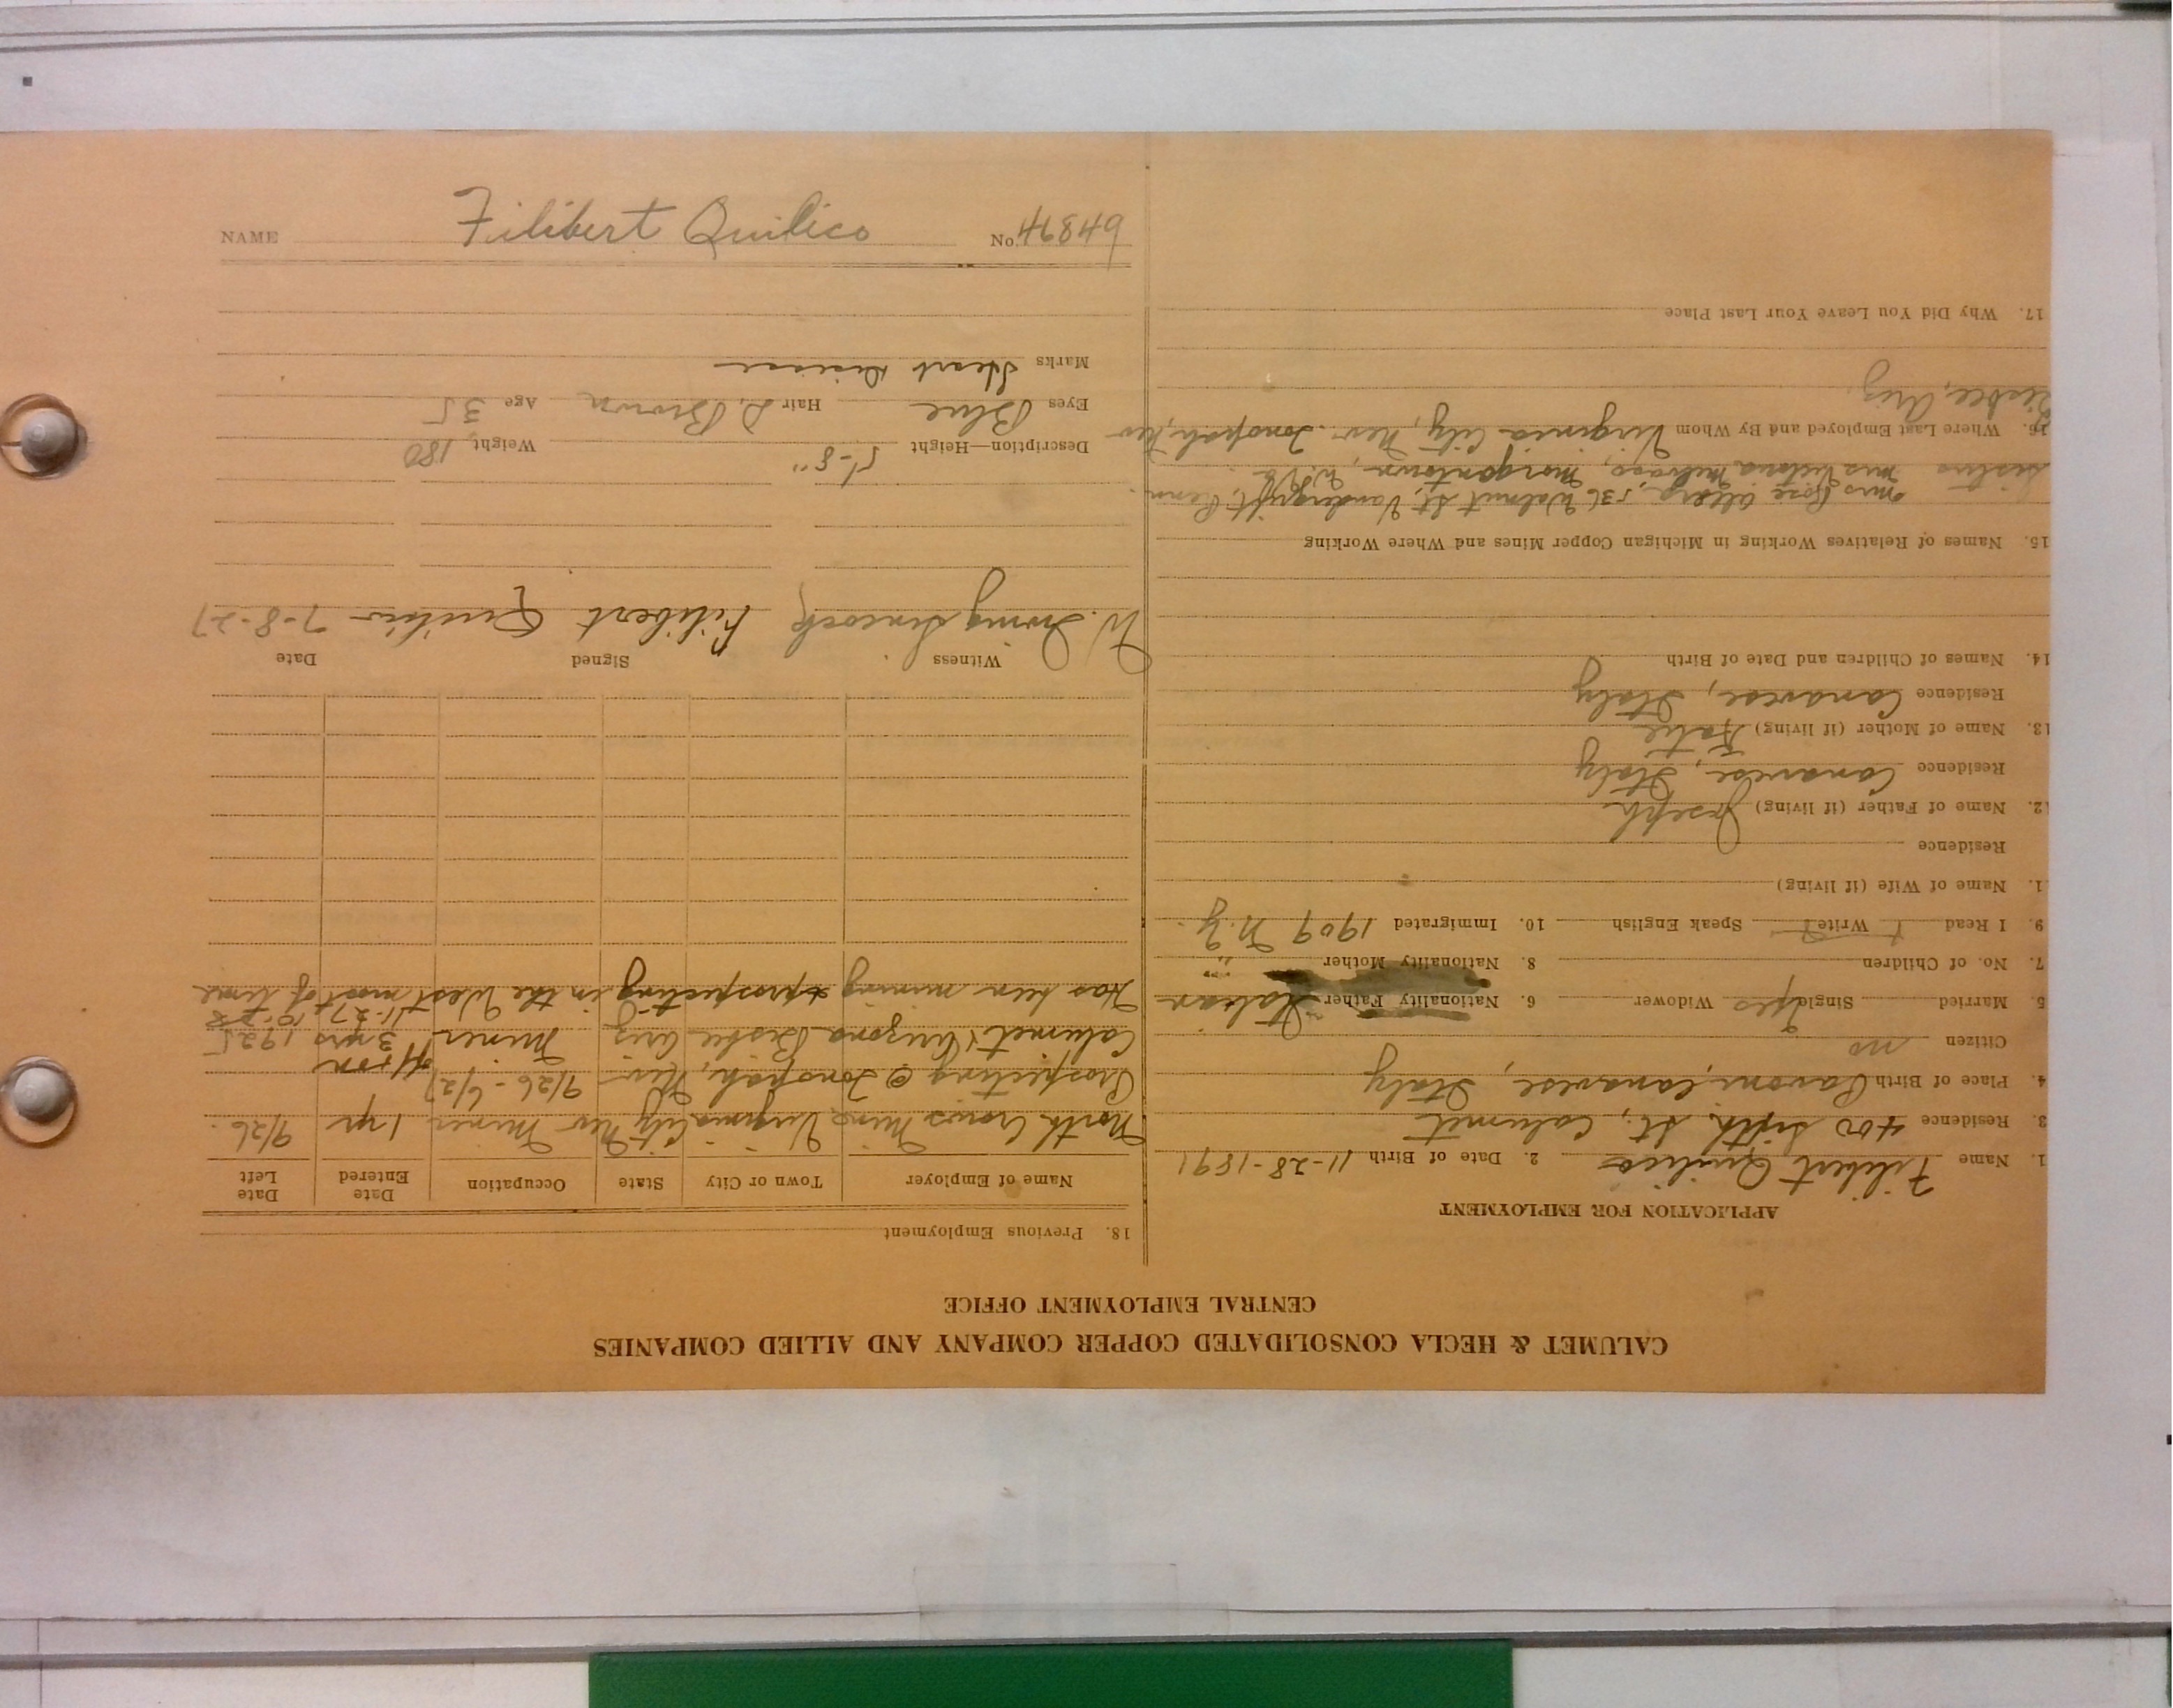 NAME Filibert Quilico No. 46849
CALUMET & HECLA CONSOLIDATED COPPER COMPANY AND ALLIED COMPANIES
CENTRAL EMPLOYMENT OFFICE
APPLICATION FOR EMPLOYMENT
1. Name Filibert Quilico 2. Date of Birth 11-28-1891
3. Residence 400 Sixth St., Calumet
4. Place of Birth Canavese, Italy
Citizen no
5. Married Single yes Widower 6. Nationality Father Italian
7. No. of Children 8. Nationality Mother "
9. I Read Write Speak English 10. Immigrated 1909 N.Y.
11. Name of Wife (if living)
Residence
12. Name of Father (if living) Joseph
Residence Canavese, Italy
13. Name of Mother (if living) Katie
Residence Canavese, Italy
14. Names of Children and Date of Birth
15. Names of Relatives Working in Michigan Copper Mines and Where Working
Mrs Rose 536 Walnut St., Vandergrift, Penn.
Sisters Mrs Victoria Morgantown, W. Va.
16. Where Last Employed and By Whom Virginia City, Nev. Tonopah, Nev
Bisbee, Ariz.
17. Why Did You Leave Your Last Place
18. Previous Employment
Name of Employer Town or City State Occupation Date Entered Date Left
North Mine Virginia City Nev Miner 1 yr 9/26.
Prospecting @ Tonopah, Nev 9/26 - 6/27
Calumet & Arizona Bisbee Ariz Miner 3 yrs off & on 1925
Has been mining & prospecting in the West most of time
Witness Signed Date
W. Irving Filibert Quilico 7-8-27
Description—Height 5'-8" Weight 180
Eyes Blue Hair D. Brown Age 35
Marks Heart Disease